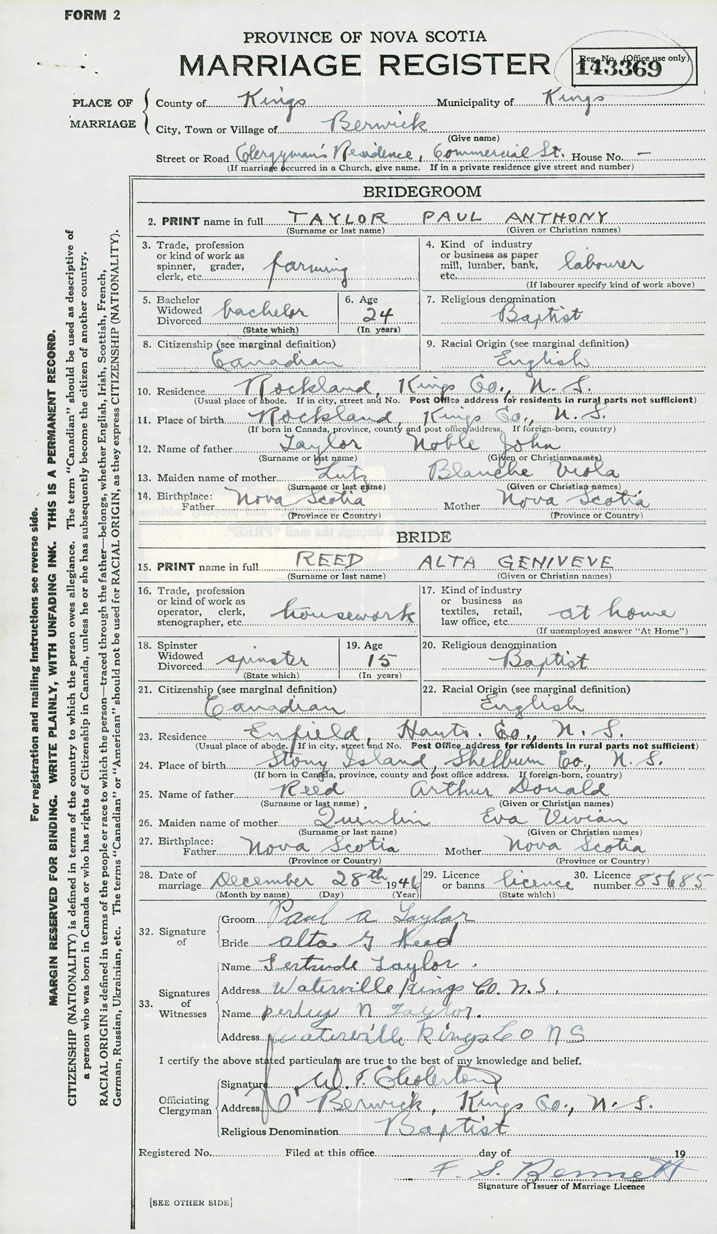 FORM 2
PROVINCE OF NOVA SCOTIA
MARRIAGE REGISTER
Reg. No. (Office use only)
143369
PLACE OF MARRIAGE
County of Kings Municipality of Kings
City, Town or Village of Berwick
(Give name)
Street or Road Clergyman's Residence, Commercial St. House No. –
(If marriage occurred in a Church, give name. If in a private residence give street and number)
BRIDEGROOM
2. PRINT name in full TAYLOR PAUL ANTHONY
(Surname or last name) (Given or Christian names)
3. Trade, profession or kind of work as spinner, grader, clerk, etc. farming
4. Kind of industry or business as paper mill, lumber, bank, etc. labourer
(If labourer specify kind of work above)
5. Bachelor Widowed Divorced bachelor
(State which)
6. Age 24
(In years)
7. Religious denomination
Baptist
8. Citizenship (see marginal definition)
Canadian
9. Racial Origin (see marginal definition)
English
10. Residence Rockland, Kings Co., N. S.
(Usual place of abode. If in city, street and No. Post Office address for residents in rural parts not sufficient)
11. Place of birth Rockland, Kings Co., N. S.
(If born in Canada, province, county and post office address. If foreign-born, country)
12. Name of father Taylor Noble John
(Surname or last name) (Given or Christian names)
13. Maiden name of mother Lutz Blanche Viola
(Surname or last name) (Given or Christian names)
14. Birthplace: Father Nova Scotia Mother Nova Scotia
(Province or Country) (Province or Country)
BRIDE
15. PRINT name in full REED ALTA GENIVEVE
(Surname or last name) (Given or Christian names)
16. Trade, profession or kind of work as operator, clerk, stenographer, etc. housework
17. Kind of industry or business as textiles, retail, law office, etc. at home
(If unemployed answer "At Home")
18. Spinster Widowed Divorced spinster
(State which)
19. Age 15
(In years)
20. Religious denomination
Baptist
21. Citizenship (see marginal definition)
Canadian
22. Racial Origin (see marginal definition)
English
23. Residence Enfield, Hants. Co., N. S.
(Usual place of abode. If in city, street and No. Post Office address for residents in rural parts not sufficient)
24. Place of birth Stony Island, Shelburn Co., N. S.
(If born in Canada, province, county and post office address. If foreign-born, country)
25. Name of father Reed Arthur Donald
(Surname or last name) (Given or Christian names)
26. Maiden name of mother Quinlin Eva Vivian
(Surname or last name) (Given or Christian names)
27. Birthplace: Father Nova Scotia Mother Nova Scotia
(Province or Country) (Province or Country)
28. Date of marriage December 28th 1946
(Month by name) (Day) (Year)
29. Licence or banns licence
(State which)
30. Licence number 85685
32. Signature of
Groom Paul A Taylor
Bride alta G Reed
33. Signatures of Witnesses
Name Gertrude Taylor.
Address Waterville Kings Co. N.S.
Name perley N Taylor.
Address waterville Kings Co N S
I certify the above stated particulars are true to the best of my knowledge and belief.
Officiating Clergyman
Signature W. F.
Address Berwick, Kings Co., N. S.
Religious Denomination Baptist
Registered No. Filed at this office day of 19
F. S. Bennett
Signature of Issuer of Marriage Licence
[SEE OTHER SIDE]
For registration and mailing instructions see reverse side.
MARGIN RESERVED FOR BINDING. WRITE PLAINLY, WITH UNFADING INK. THIS IS A PERMANENT RECORD.
CITIZENSHIP (NATIONALITY) is defined in terms of the country to which the person owes allegiance. The term "Canadian" should be used as descriptive of
a person who was born in Canada or who has rights of Citizenship in Canada, unless he or she has subsequently become the citizen of another country.
RACIAL ORIGIN is defined in terms of the people or race to which the person—traced through the father—belongs, whether English, Irish, Scottish, French,
German, Russian, Ukrainian, etc. The terms "Canadian" or "American" should not be used for RACIAL ORIGIN, as they express CITIZENSHIP (NATIONALITY).